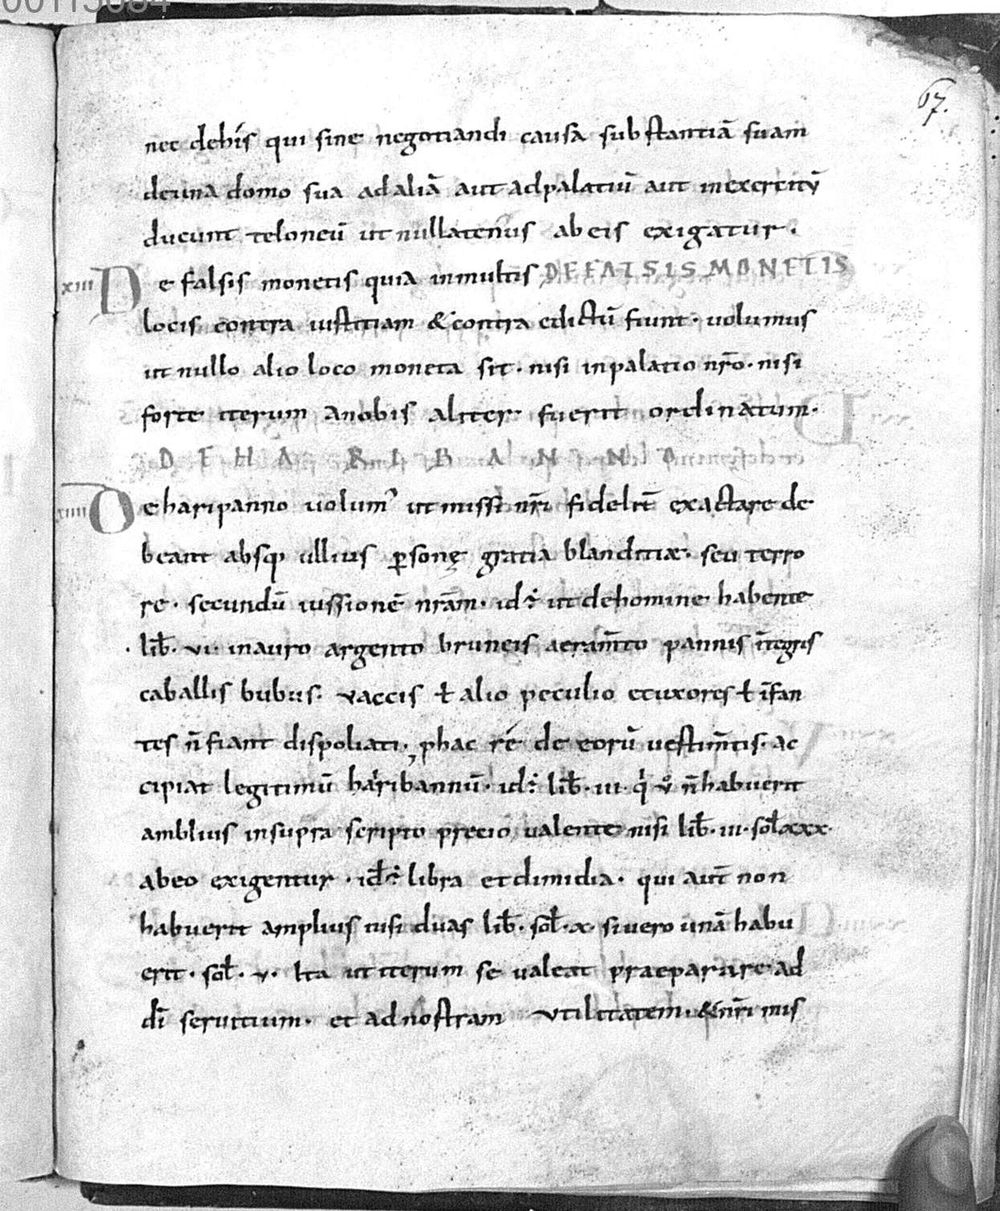 00113084
67.
nec dehis qui sine negotiandi causa substantiā suam
deuna domo sua ad aliā aut adpalatiū aut inexercitū
ducunt teloneū ut nullatenus ab eis exigatur.
xiii De falsis monetis quia inmultis DE FALSIS MONETIS
locis contra iustitiam & contra edictū fiunt · uolumus
ut nullo alio loco moneta sit · nisi inpalatio nr̄o · nisi
forte iterum anobis aliter fuerit ordinatum ·
DE HARIBANNO
xiiii De haripanno uolum' ut missi nr̄i fidelit̄ exactare de
beant absq; ullius ꝑsonę gratia blanditiae · seu terro
re · secundū iussionē nr̄am · id ÷ ut dehomine habente
· lib̄ · vi · inauro argento bruneis aeram̄to pannis īntegris
caballis bubus · vaccis ł alio peculio et uxores ł īfan
tes n̄ fiant dispoliati, ꝓ hac rē de eorū uestim̄tis · ac
cipiat legitimū haribannū · id ÷ lib̄ · iii · qi v̊ n̄ habuerit
amblius insupra scripto precio ualente nisi lib̄ · iii · sol̄ xxx ·
abeo exigentur · id ÷ libra et dimidia · qui aut̄ non
habuerit amplius nisi duas lib̄ · sol̄ · x · si uero unā habu
erit · sol̄ · v · Ita ut iterum se ualeat praeparare ad
dī seruitium · et ad nostram utilitatem · & nr̄i mis